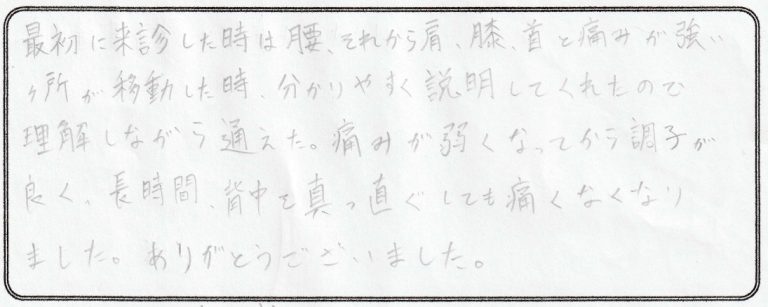 最初に来診した時は腰、それから肩、膝、首と痛みが強い
ヶ所が移動した時、分かりやすく説明してくれたので
理解しながら通えた。痛みが弱くなってから調子が
良く、長時間、背中を真っ直ぐしても痛くなくなり
ました。ありがとうございました。